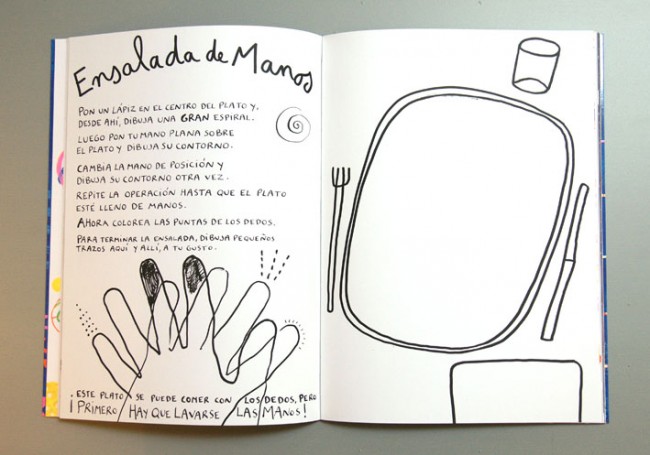 Ensalada de Manos
PON UN LÁPIZ EN EL CENTRO DEL PLATO Y,
DESDE AHÍ, DIBUJA UNA GRAN ESPIRAL.
LUEGO PON TU MANO PLANA SOBRE
EL PLATO Y DIBUJA SU CONTORNO.
CAMBIA LA MANO DE POSICIÓN Y
DIBUJA SU CONTORNO OTRA VEZ.
REPITE LA OPERACIÓN HASTA QUE EL PLATO
ESTÉ LLENO DE MANOS.
AHORA COLOREA LAS PUNTAS DE LOS DEDOS.
PARA TERMINAR LA ENSALADA, DIBUJA PEQUEÑOS
TRAZOS AQUÍ Y ALLÍ, A TU GUSTO.
¡ESTE PLATO SE PUEDE COMER CON LOS DEDOS, PERO
PRIMERO HAY QUE LAVARSE LAS MANOS!